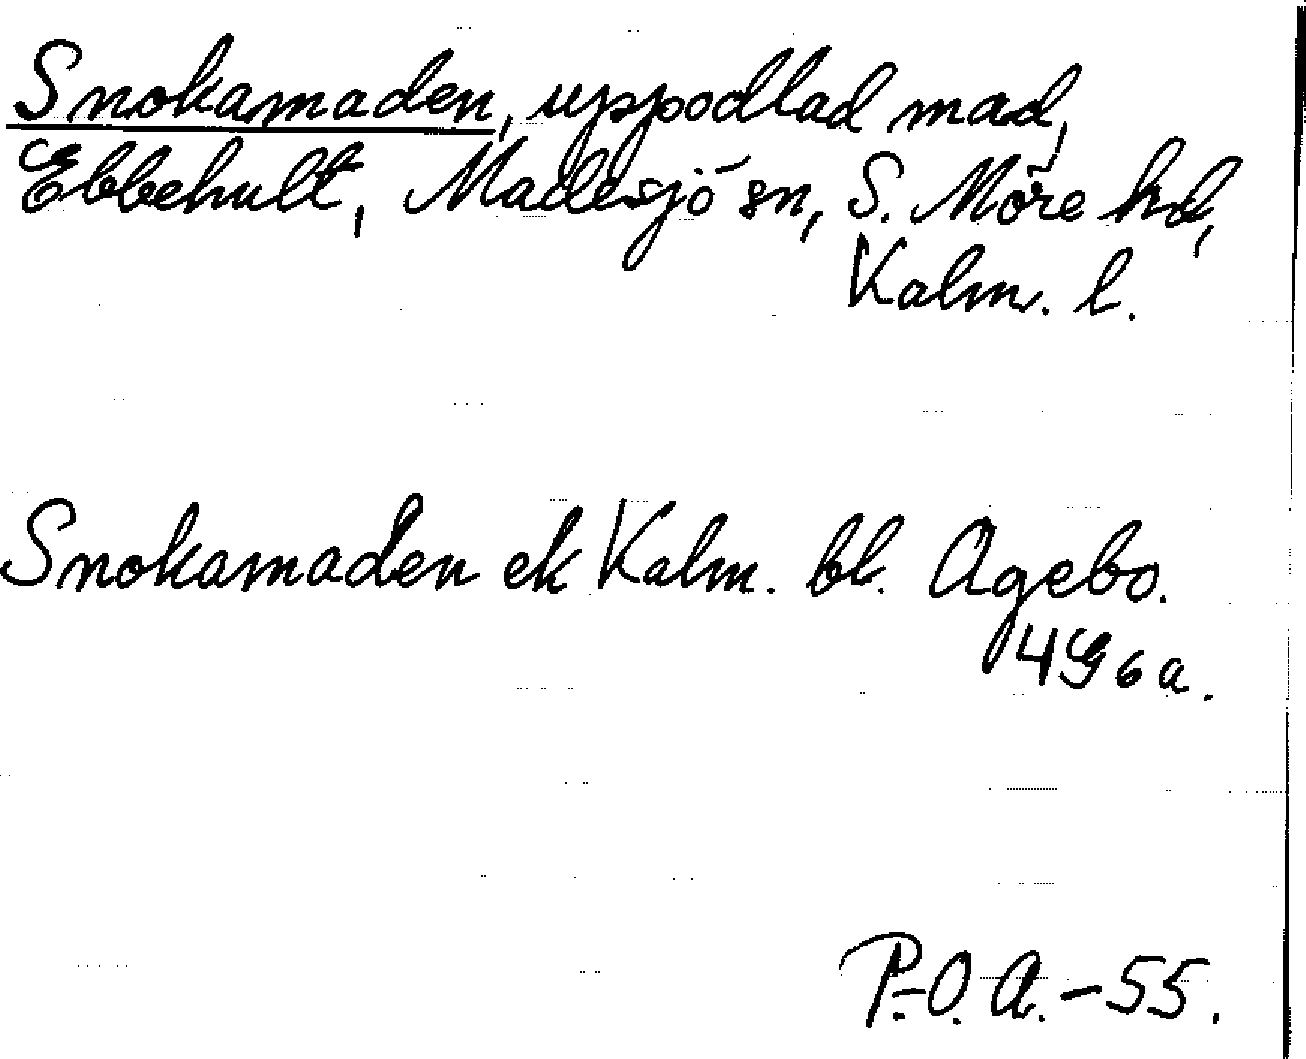 Snokamaden, uppodlad mad,
Ebbehult, Madesjö sn, S. Möre hd,
Kalm. l.
Snokamaden ek Kalm. bl. Agebo.
4G6a.
P.-O. A. - 55.